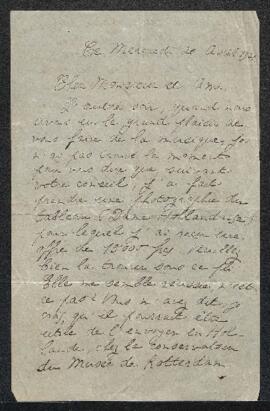 Ce Mercredi 20 Avril
Cher Monsieur et Ami.
L'autre soir, quand nous
avons eu le grand plaisir de
vous faire de la musique, je
n'ai pas trouvé le moment
pour vous dire que suivant
votre conseil, j'ai fait
prendre une photographie du
tableau
pour lequel j'ai reçu une
offre de 10.000 frs, veuillez
bien la trouver sous ce pli
Elle me semble réussie, n'est
ce pas? Vous m'avez dit, je
crois, qu'il pourrait être
utile de l'envoyer en Hol
lande, chez le Conservateur
du Musée de Rotterdam